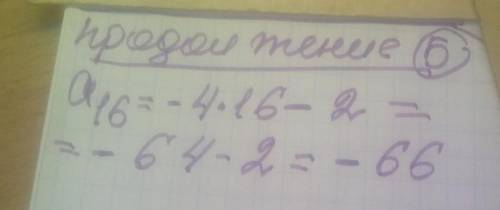 продолжение 5
a₁₆ = -4·16 - 2 =
= - 64 - 2 = - 66